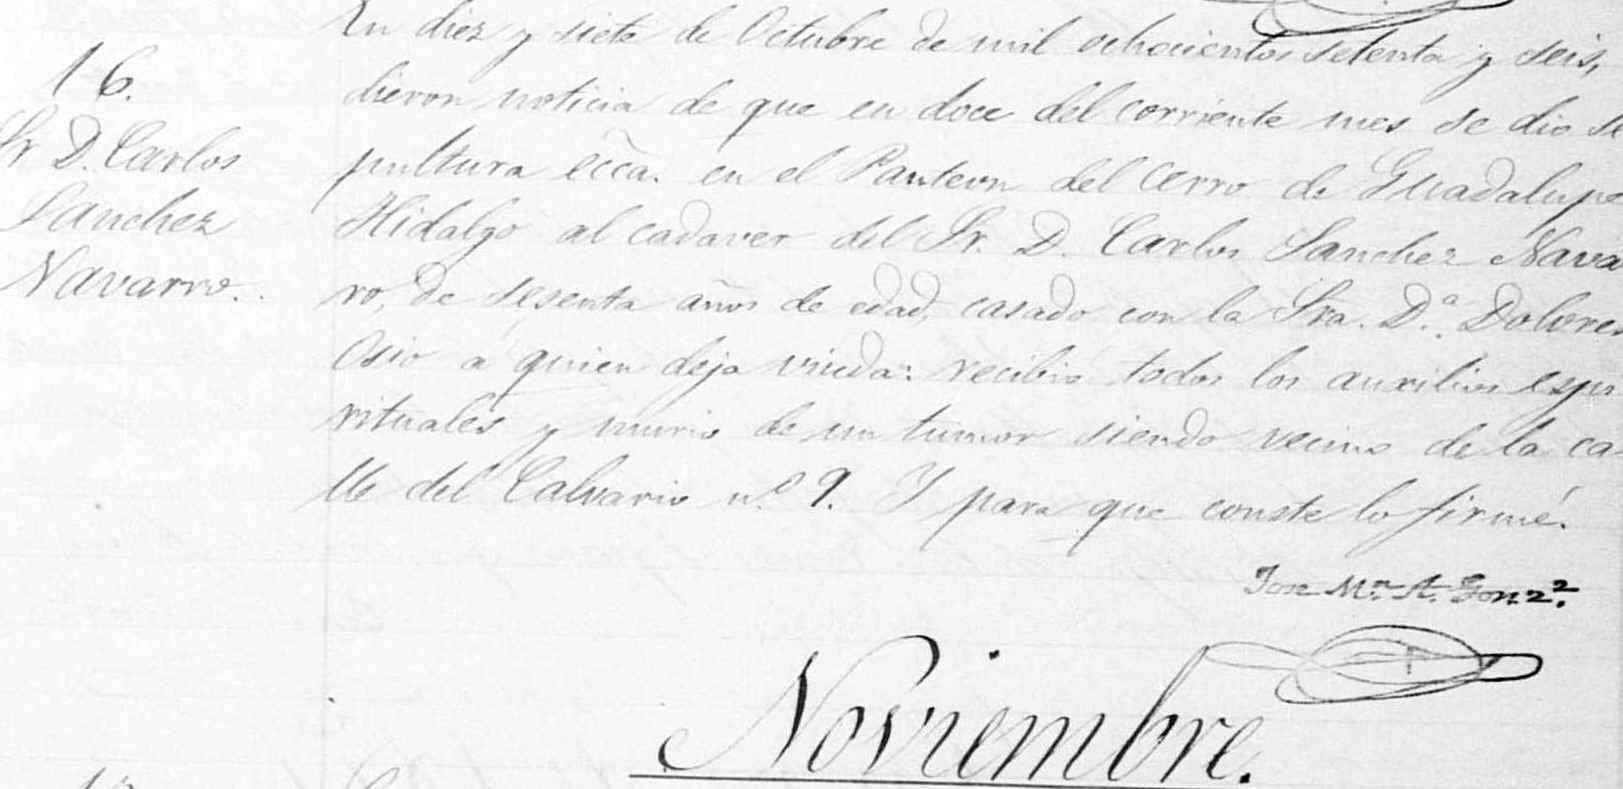 En diez y siete de Octubre de mil ochocientos setenta y seis,
16.
dieron noticia de que en doce del corriente mes se dio se
Sr. D. Carlos
pultura ecca. en el Panteon del cerro de Guadalupe
Sanchez
Hidalgo al cadaver del Sr. D. Carlos Sanchez Nava
Navarro.
ro, de sesenta años de edad, casado con la Sra. D.ª Dolores
Osio á quien deja viuda: recibió todos los auxilios espi
rituales y murio de un tumor siendo vecino de la ca
lle del Calvario n.º 9. Y para que conste lo firmé.
Jose M.ª A. Gonz.z
Noviembre.
17